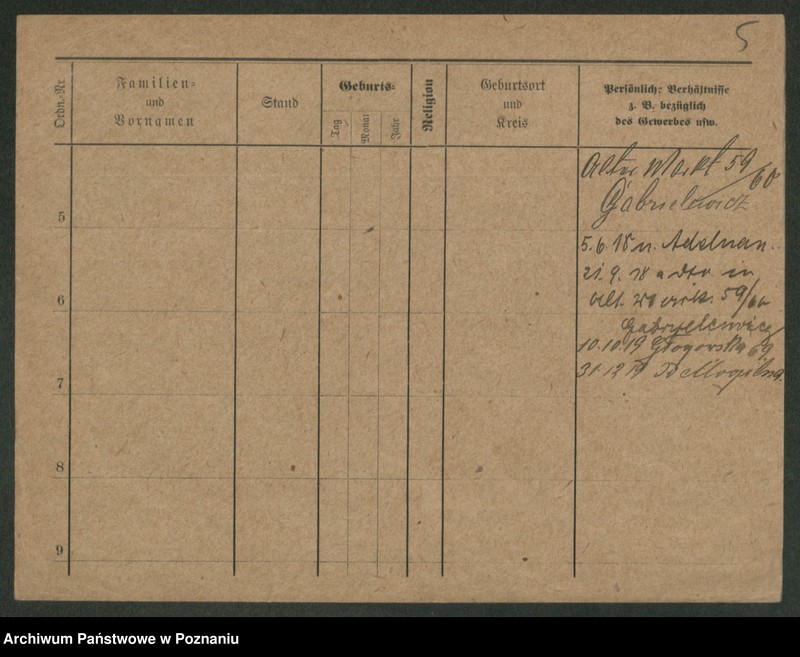 5
Ordn.-Nr.
Familien-
und
Vornamen
Stand
Geburts-
Tag
Monat
Jahr
Religion
Geburtsort
und
Kreis
Persönliche Verhältnisse
z. B. bezüglich
des Gewerbes usw.
Alter Markt 59/60
Gabrielewicz
5
5.6.18 n.
21.9.18
6
Alt. 59/60
Gabryelewicz
10.10.19 Glogowska 69
7
31.12.19
8
9
Archiwum Państwowe w Poznaniu